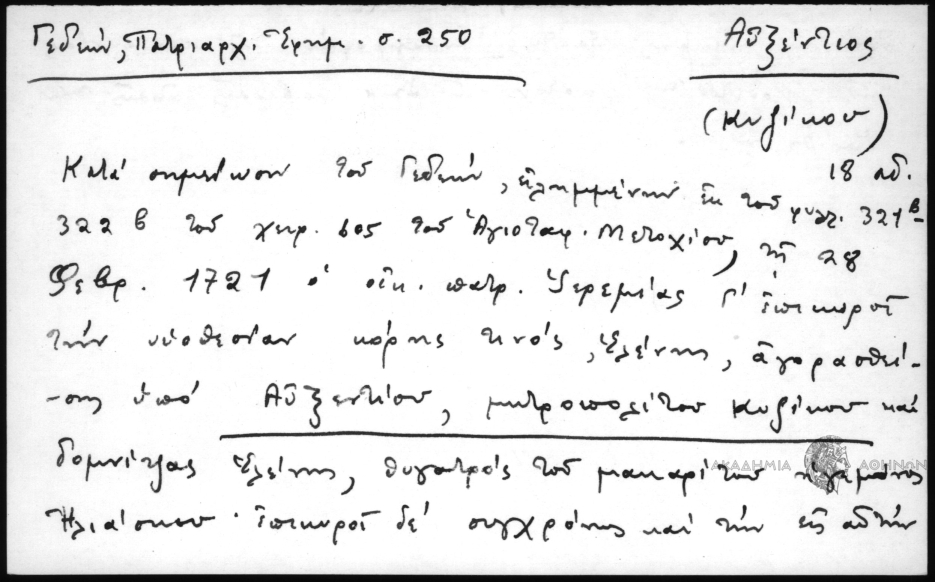 Γεδεών, Πατριαρχ. Ἐφημ. σ. 250
Αὐξέντιος
(Κυζίκου)
18 αἰ.
Κατά σημείωσιν τοῦ Γεδεών, εἰλημμένην ἐκ τοῦ φυλλ. 321β-
322β τοῦ χειρ. 605 τοῦ Ἁγιοταφ. Μετοχίου, τῇ 28
Φεβρ. 1721 ὁ οἰκ. πατρ. Ἱερεμίας Γ' ἐπικυροῖ
τήν υἱοθεσίαν κόρης τινός, Ἑλένης, ἀγορασθεί-
-σης ὑπό Αὐξεντίου, μητροπολίτου Κυζίκου καί
δομνίτζας Ἑλένης, θυγατρός τοῦ μακαρίτου ἡγεμόνος
Ἠλιάσκου. Ἐπικυροῖ δέ συγχρόνως καί τήν εἰς αὐτήν
ΑΚΑΔΗΜΙΑ ΑΘΗΝΩΝ